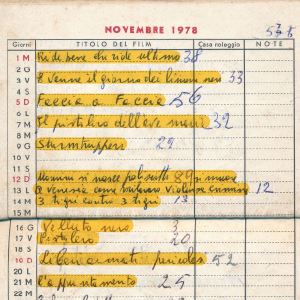 NOVEMBRE 1978 575
Giorni TITOLO DEL FILM Casa noleggio NOTE
1 M Ride bene chi ride ultimo 38
2 G
3 V E venne il giorno dei limoni neri 33
4 S
5 D Faccia a Faccia 56
6 L
7 M Il pistolero dell'ave maria 32
8 M
9 G Sturmtruppen 29
10 V
11 S
12 D Uomini si nasce poliziotti si muore 89
13 L A Venezia come 12
14 M 3 tigri contro 3 tigri 13
15 M
16 G Velluto nero 3
17 V Pistolero 20
18 S
19 D 52
20 L
21 M L'appuntamento 25